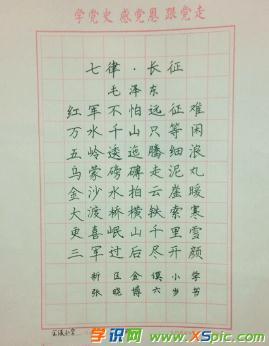 学党史 感党恩 跟党走
七律·长征
毛泽东
红军不怕远征难
万水千山只等闲
五岭逶迤腾细浪
乌蒙磅礴走泥丸
金沙水拍云崖暖
大渡桥横铁索寒
更喜岷山千里雪
三军过后尽开颜
新区金谟小学
张晓博六岁书
学识网
www.XSpic.com